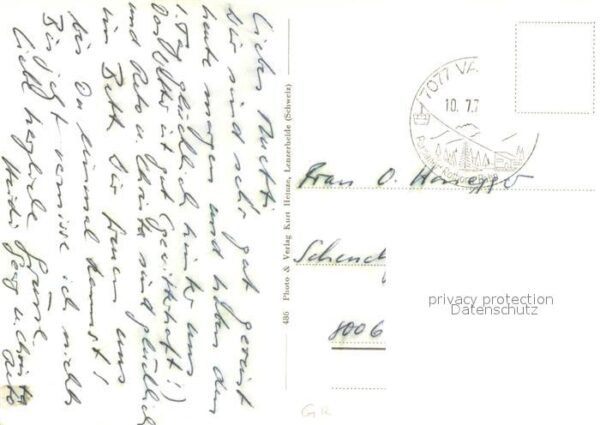 Liebes Mutti
Wir sind sehr gut gereist
heute morgen und haben den
1. Tag glücklich hinter uns.
Das Wetter ist gut (gewitterhaft!)
und Reto u. Christa sind glücklich
im Bett. Wir freuen uns
bis Du einmal kommst!
Bis jetzt vermisse ich nichts
Liebe herzliche Grüsse
Heidi, u. Christa
Reto
486 Photo & Verlag Kurt Heinze, Lenzerheide (Schweiz)
7077 VA
10. 7.7
Frau O. Honegger
Scheuch
8006
privacy protection
Datenschutz
GR